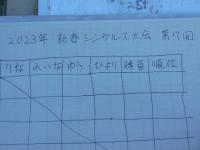 2023年 新春シングルス大会 第17回
りな れいな ゆう ひより 勝負 順位